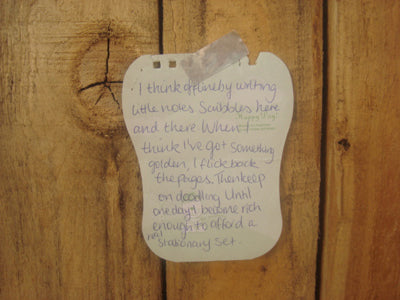 I think offline by writing
little notes Scribbles here
and there When I
think I've got something
golden, I flick back
the pages. Then keep
on doodling Until
one day I become rich
enough to afford a
real
Stationary Set.